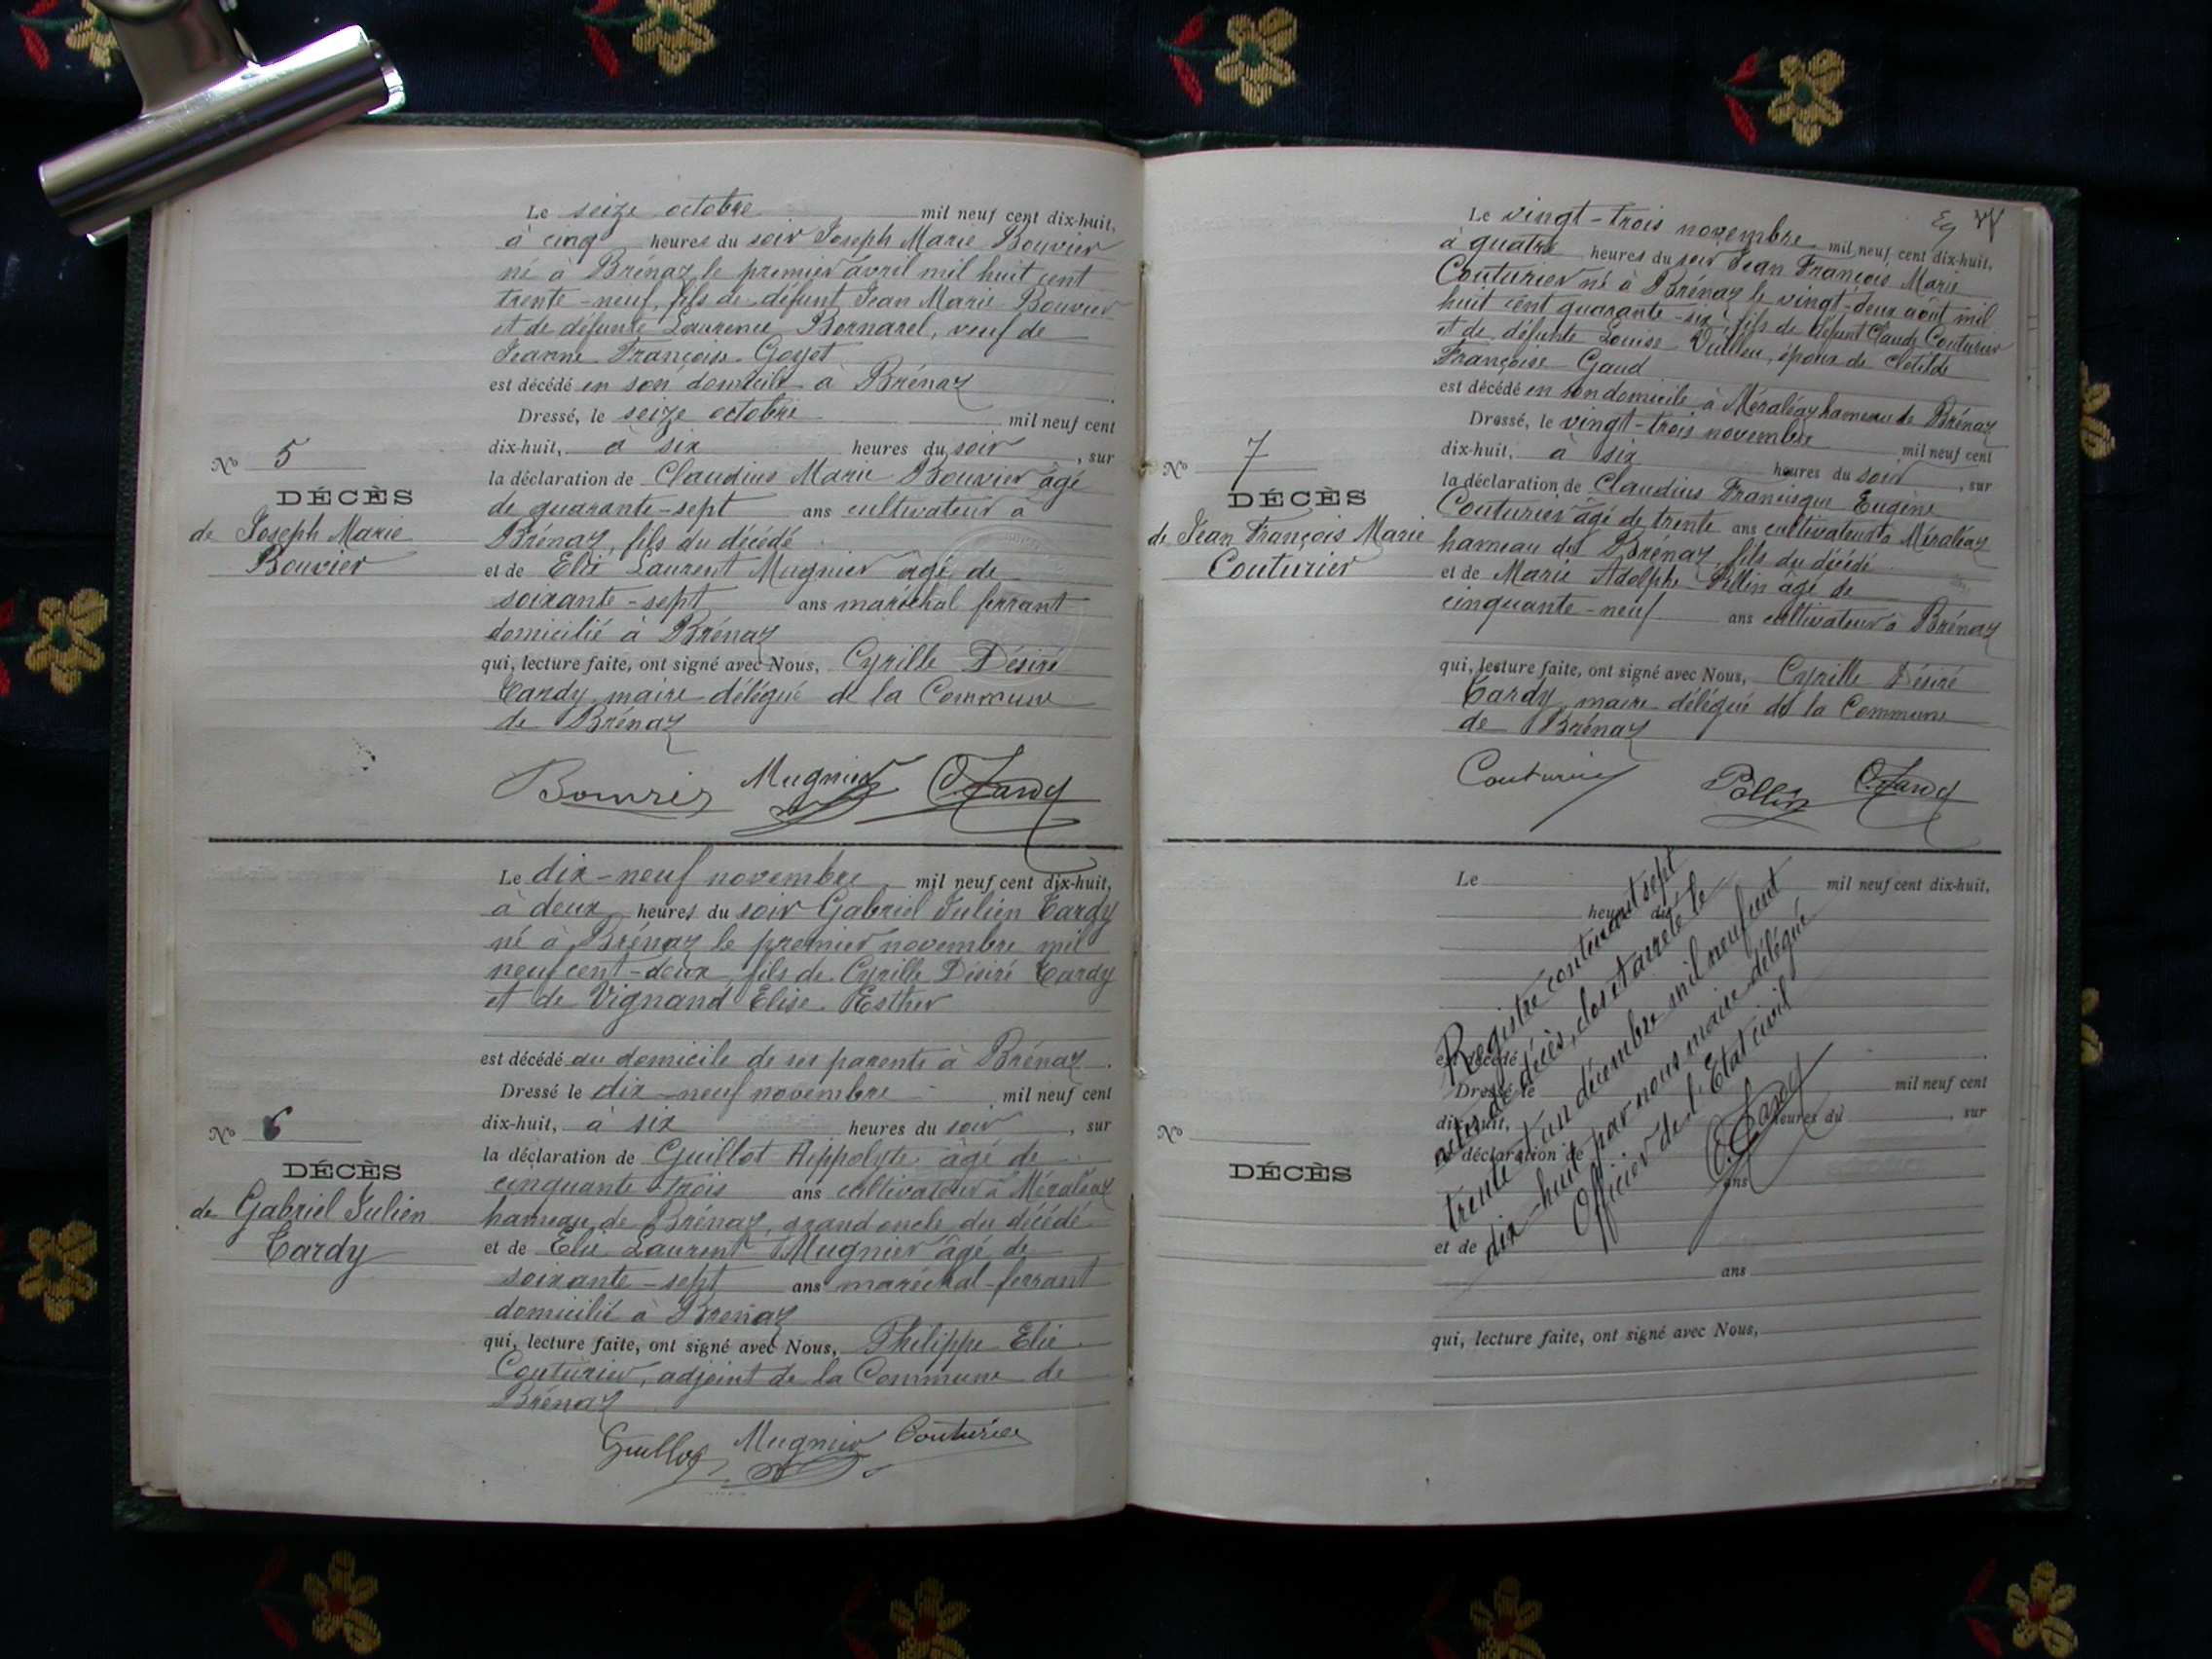 Le seize octobre mil neuf cent dix-huit,
à cinq heures du soir Joseph Marie Bouvier
né à Brénaz le premier avril mil huit cent
trente-neuf, fils de défunt Jean Marie Bouvier
et de défunte Laurence Bernard, veuf de
Jeanne Françoise Goyet
est décédé en son domicile à Brénaz
Dressé, le seize octobre mil neuf cent
dix-huit, à six heures du soir, sur
No 5
la déclaration de Claudius Marie Bouvier âgé
DÉCÈS
de quarante-sept ans cultivateur à
de Joseph Marie
Brénaz, fils du décédé
Bouvier
et de Elie Laurent Mugnier âgé de
soixante-sept ans maréchal ferrant
domicilié à Brénaz
qui, lecture faite, ont signé avec Nous, Cyrille Désiré
Tardy, maire délégué de la Commune
de Brénaz
Bouvier Mugnier C. Tardy
Le dix-neuf novembre mil neuf cent dix-huit,
à deux heures du soir Gabriel Julien Tardy
né à Brénaz le premier novembre mil
neuf cent-deux, fils de Cyrille Désiré Tardy
et de Vignand Elise Esther
est décédé au domicile de ses parents à Brénaz.
Dressé le dix-neuf novembre mil neuf cent
dix-huit, à six heures du soir, sur
No 6
la déclaration de Guillot Hippolyte âgé de
DÉCÈS
cinquante trois ans cultivateur à Méraléaz
de Gabriel Julien
hameau de Brénaz, grand oncle du décédé
Tardy
et de Elie Laurent Mugnier âgé de
soixante-sept ans maréchal-ferrant
domicilié à Brénaz
qui, lecture faite, ont signé avec Nous, Philippe Elie
Couturier, adjoint de la Commune de
Brénaz
Guillot Mugnier Couturier
Le vingt-trois novembre mil neuf cent dix-huit,
à quatre heures du soir Jean François Marie
Couturier né à Brénaz le vingt-deux août mil
huit cent quarante-six, fils de défunt Claude Couturier
et de défunte Louise, époux de Clotilde
Françoise Gaud
est décédé en son domicile à Méraléaz hameau de Brénaz
Dressé, le vingt-trois novembre mil neuf cent
dix-huit, à six heures du soir, sur
No 7
la déclaration de Claudius Francisque Eugène
DÉCÈS
Couturier âgé de trente ans cultivateur à Méraléaz
de Jean François Marie
hameau de Brénaz, fils du décédé
Couturier
et de Marie Adolphe Pollin âgé de
cinquante-neuf ans cultivateur à Brénaz
qui, lecture faite, ont signé avec Nous, Cyrille Désiré
Tardy, maire délégué de la Commune
de Brénaz
Couturier Pollin C. Tardy
Le mil neuf cent dix-huit,
heures du
est décédé
Dressé le mil neuf cent
dix-huit, heures du , sur
No
la déclaration de
DÉCÈS
ans
et de
ans
qui, lecture faite, ont signé avec Nous,
Registre contenant sept
actes de décès, clos et arrêté le
trente et un décembre mil neuf cent
dix-huit par nous maire délégué
Officier de l'Etat civil
C. Tardy